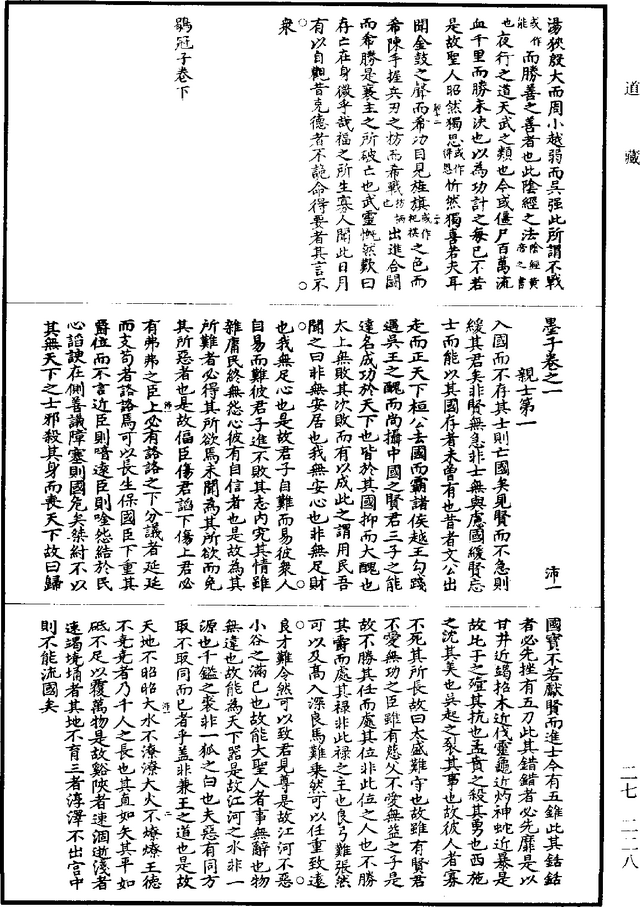 道藏
湯狹殷大而周小越弱而吳强此所謂不戰
而勝善之善者也此陰經之法
也夜行之道天武之類也今或僵尸百萬流
血千里而勝未決也以為功計之每已不若
是故聖人昭然獨思忻然獨喜若夫耳
聞金鼓之聲而希功目見旌旗之色而
希陳手握兵刃之枋而希戰出進合鬬
而希勝是襄主之所破亡也武靈慨然歎曰
存亡在身微乎哉福之所生寡人聞此日月
有以自觀昔克德者不詭命得要者其言不
衆
鶡冠子卷下
墨子卷之一
沛一
親士第一
入國而不存其士則亡國矣見賢而不急則
緩其君矣非賢無急非士無與慮國緩賢忘
士而能以其國存者未曾有也昔者文公出
走而正天下桓公去國而霸諸侯越王勾踐
遇吳王之醜而尚攝中國之賢君三子之能
達名成功於天下也皆於其國抑而大醜也
太上無敗其次敗而有以成此之謂用民吾
聞之曰非無安居也我無安心也非無足財
也我無足心也是故君子自難而易彼衆人
自易而難彼君子進不敗其志内究其情雖
雜庸民終無怨心彼有自信者也是故為其
所難者必得其所欲焉未聞為其所欲而免
其所惡者也是故偪臣傷君諂下傷上君必
有弗弗之臣上必有詻詻之下分議者延延
而支苟者詻詻焉可以長生保國臣下重其
爵位而不言近臣則喑遠臣則唫怨結於民
心諂諛在側善議障塞則國危矣桀紂不以
其無天下之士邪殺其身而喪天下故曰歸
國寶不若獻賢而進士今有五錐此其銛銛
者必先挫有五刀此其錯錯者必先靡是以
甘井近竭招木近伐靈龜近灼神蛇近暴是
故比干之殪其抗也孟賁之殺其勇也西施
之沈其美也吳起之裂其事也故彼人者寡
不死其所長故曰太盛難守也故雖有賢君
不愛無功之臣雖有慈父不愛無益之子是
故不勝其任而處其位非此位之人也不勝
其爵而處其禄非此禄之主也良弓難張然
可以及髙入深良馬難乗然可以任重致遠
良才難令然可以致君見尊是故江河不惡
小谷之滿已也故能大聖人者事無辭也物
無違也故能為天下器是故江河之水非一
源也千鎰之裘非一狐之白也夫惡有同方
取不取同而已者乎盖非兼王之道也是故
天地不昭昭大水不潦潦大火不燎燎王德
不尭尭者乃千人之長也其直如矢其平如
砥不足以覆萬物是故谿陜者速涸逝淺者
速竭墝埆者其地不育王者淳澤不出宮中
則不能流國矣
二七 二二八